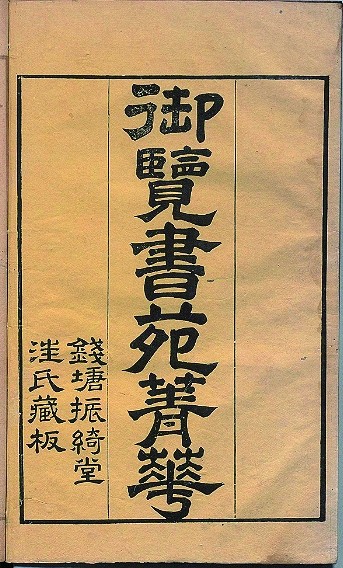 御覽書苑菁華
錢塘振綺堂
汪氏藏板